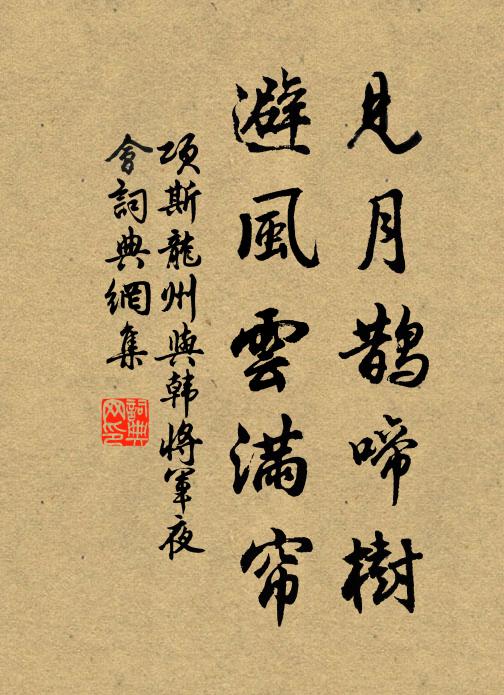 见月鹊啼樹
避風雲滿帘
项斯龍州與韩將軍夜
會詞典網集
詞典
网印